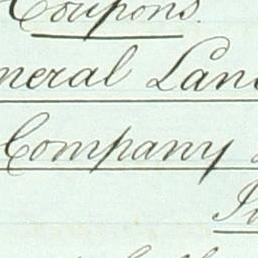 Coupons.
neral Lan
Company